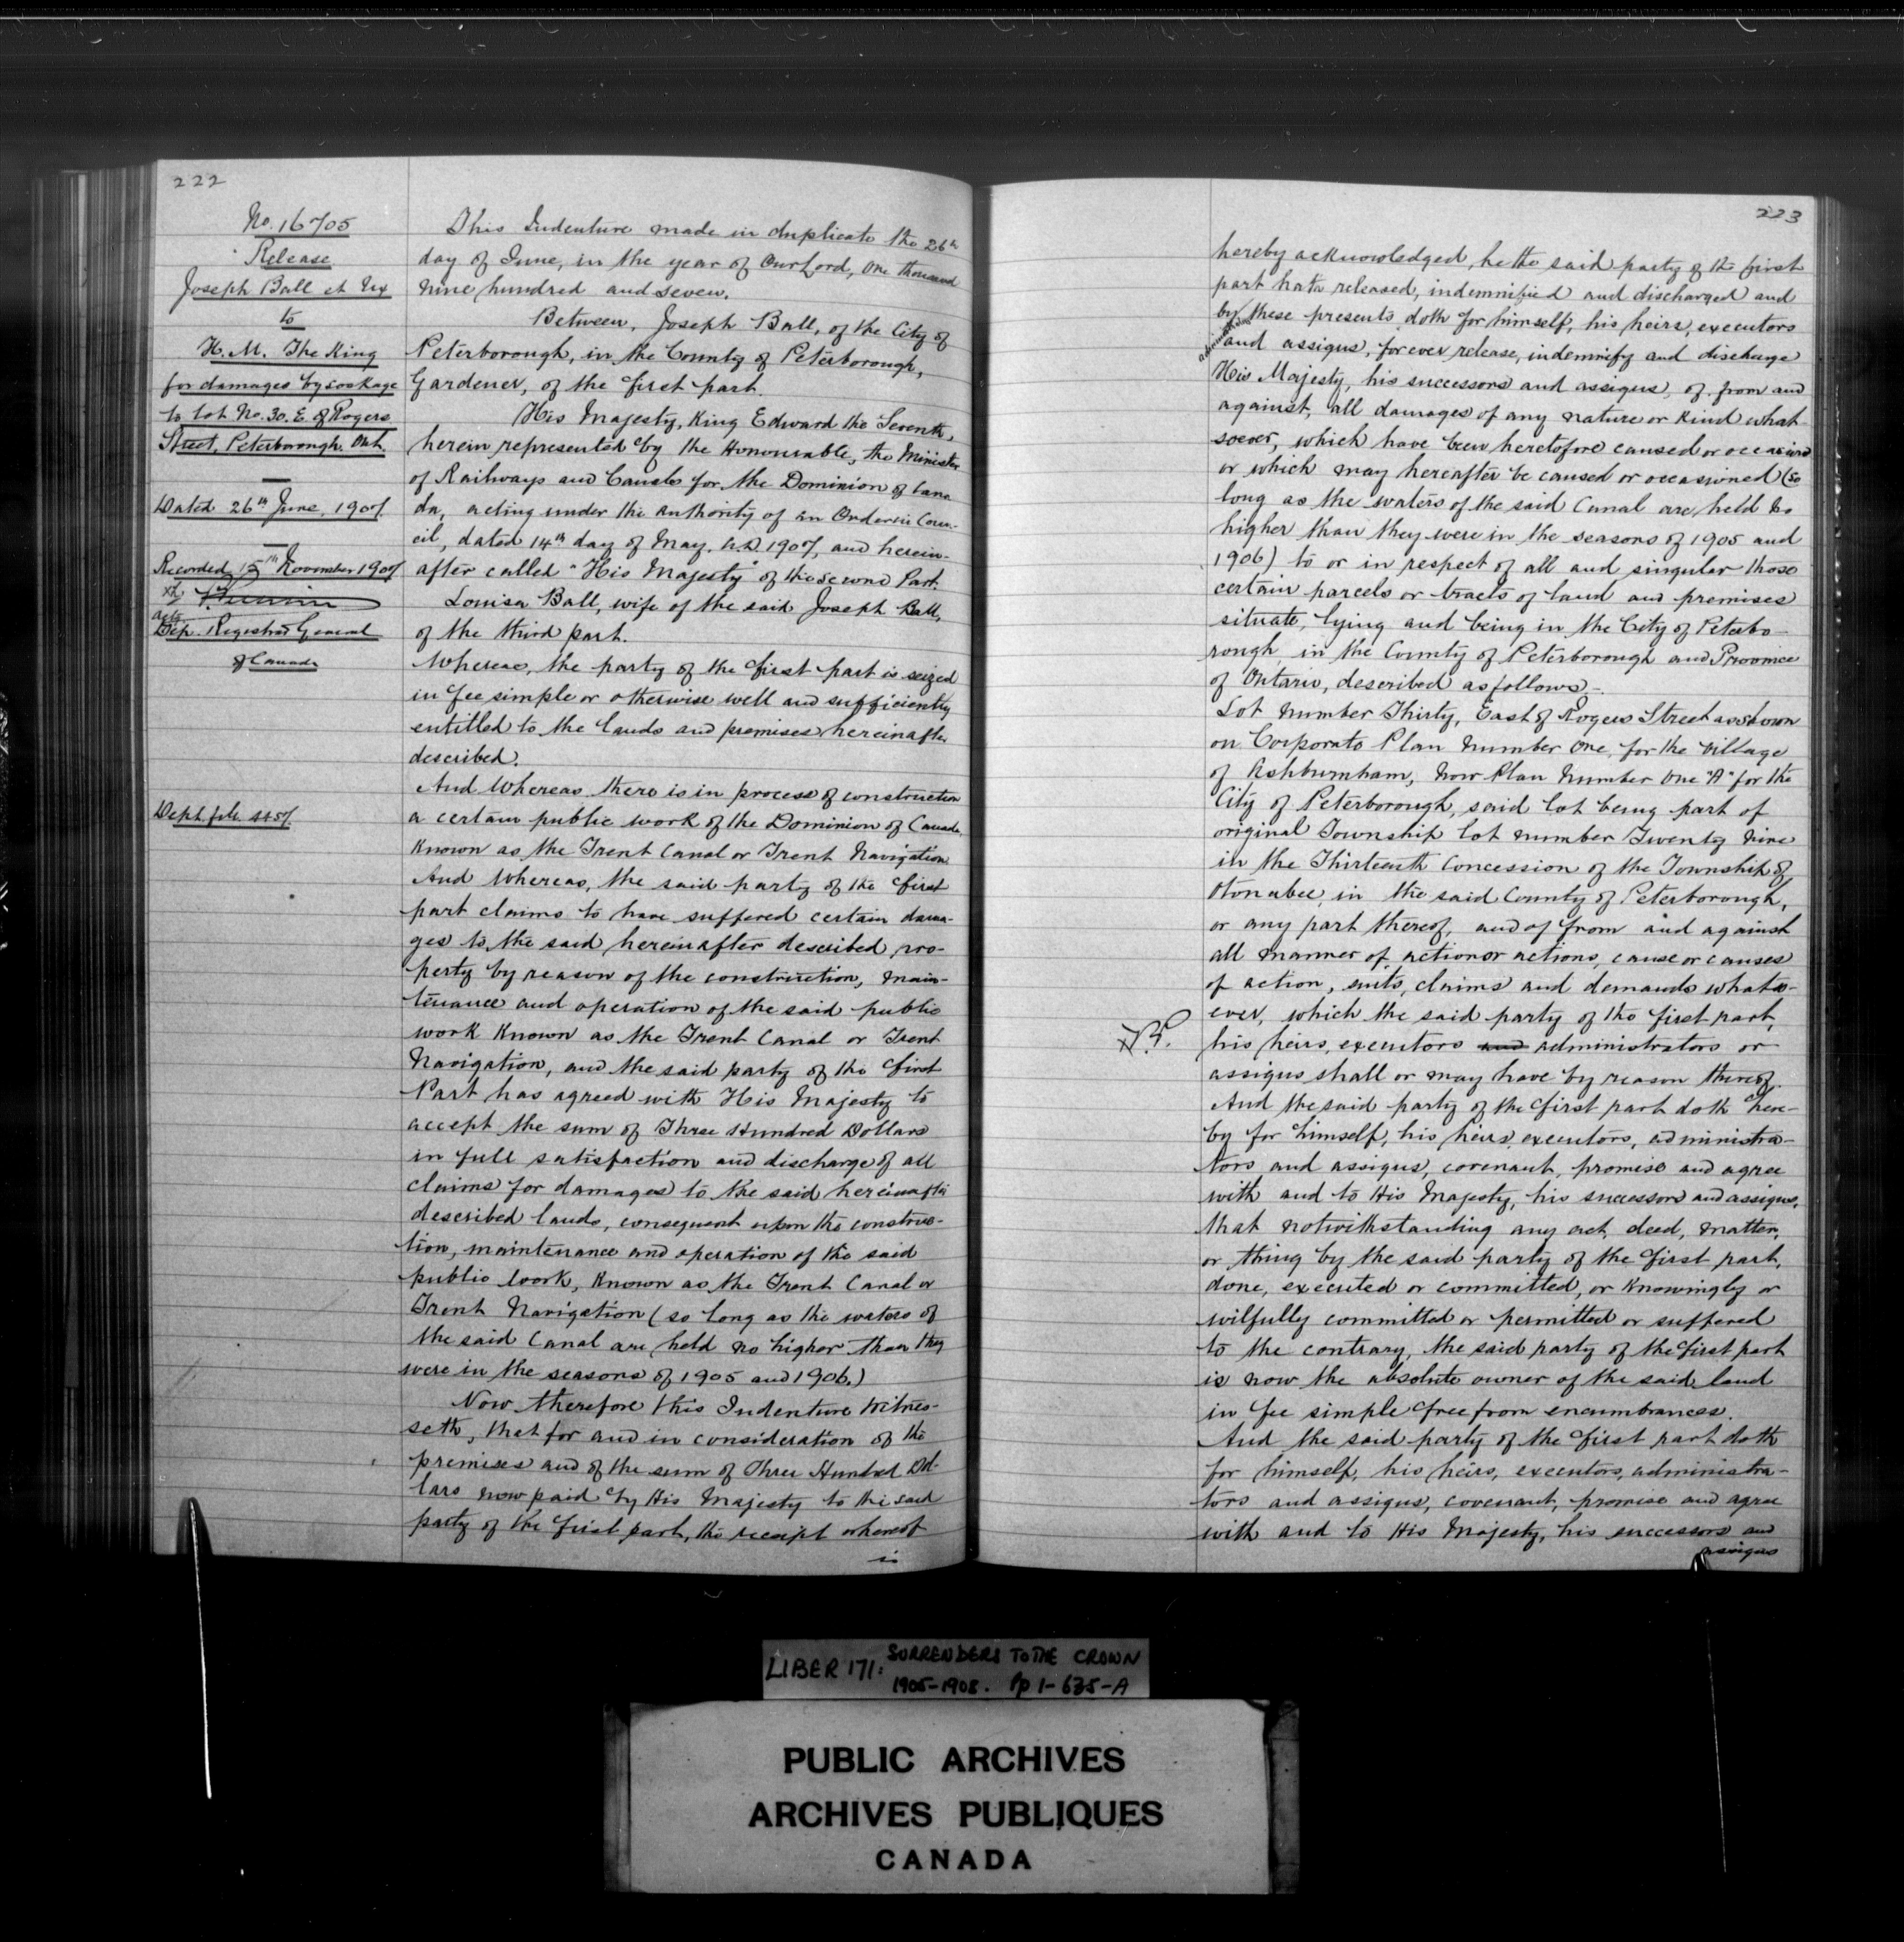 222
No. 16705
Release
Joseph Ball et Ux
to
H. M. The King
for damages by soakage
to lot No. 30. E. of Rogers
Street, Peterborough. Ont.
Dated 26th June, 1907.
Recorded 15th November 1907
actg
Dep. Registrar General
of Canada
Dept. file
This Indenture made in duplicate the 26th
day of June, in the year of Our Lord, One thousand
nine hundred and seven.
Between, Joseph Ball, of the City of
Peterborough, in the County of Peterborough,
Gardener, of the first part.
His Majesty, King Edward the Seventh,
herein represented by the Honourable, the Minister
of Railways and Canals for the Dominion of Cana
da, acting under the authority of an Order in Coun-
cil, dated 14th day of May, A.D. 1907, and herein-
after called "His Majesty" of the second Part.
Louisa Ball, wife of the said Joseph Ball,
of the third part.
Whereas, the party of the first part is seized
in fee simple or otherwise well and sufficiently
entitled to the lands and premises hereinafter
described.
And Whereas there is in process of construction
a certain public work of the Dominion of Canada,
Known as the Trent Canal or Trent Navigation
And Whereas, the said party of the first
part claims to have suffered certain dama-
ges to the said hereinafter described pro-
perty by reason of the construction, main-
tenance and operation of the said public
work Known as the Trent Canal or Trent
Navigation, and the said party of the first
Part has agreed with His Majesty to
accept the sum of Three Hundred Dollars
in full satisfaction and discharge of all
claims for damages to the said hereinafter
described lands, consequent upon the construc-
tion, maintenance and operation of the said
public work, Known as the Trent Canal or
Trent Navigation (so long as the waters of
the said Canal are held no higher than they
were in the seasons of 1905 and 1906.)
Now therefore this Indenture Witnes-
seth, that for and in consideration of the
premises and of the sum of Three Hundred Dol-
lars now paid by His Majesty to the said
party of the first part, the receipt whereof
is
223
hereby acknowledged, he the said party of the first
part hath released, indemnified and discharged and
by these presents doth for himself, his heirs, executors
administrators
and assigns, forever release, indemnify and discharge
His Majesty, his successors and assigns, of from and
against, all damages of any nature or Kind what-
soever, which have been heretofore caused or occasioned
or which may hereafter be caused or occasioned (so
long as the waters of the said Canal are held no
higher than they were in the seasons of 1905 and
1906) to or in respect of all and singular those
certain parcels or tracts of land and premises
situate, lying and being in the City of Peterbo-
rough in the County of Peterborough and Province
of Ontario, described as follows,-
Lot number Thirty, East of Rogers Street as shown
on Corporate Plan Number One, for the Village
of Ashburnham, now Plan Number One "A" for the
City of Peterborough, said lot being part of
original Township lot number Twenty Nine
in the Thirteenth Concession of the Township of
Otonabee, in the said County of Peterborough,
or any part thereof, and of from and against
all manner of action or actions, cause or causes
of action, suits, claims and demands whatso-
ever, which the said party of the first part,
his heirs, executors and administrators or
assigns shall or may have by reason thereof.
And the said party of the first part doth here-
by for himself, his heirs, executors, administra-
tors and assigns, covenant, promise and agree
with and to His Majesty, his successors and assigns,
that notwithstanding any act, deed, matter,
or thing by the said party of the first part,
done, executed or committed, or Knowingly or
wilfully committed or permitted or suffered
to the contrary, the said party of the first part
is now the absolute owner of the said land
in fee simple free from encumbrances.
And the said party of the first part doth
for himself, his heirs, executors, administra-
tors and assigns, covenant, promise and agree
with and to His Majesty, his successors and
assigns
LIBER 171: SURRENDERS TO THE CROWN
1905-1908. Pp 1-635-A
PUBLIC ARCHIVES
ARCHIVES PUBLIQUES
CANADA